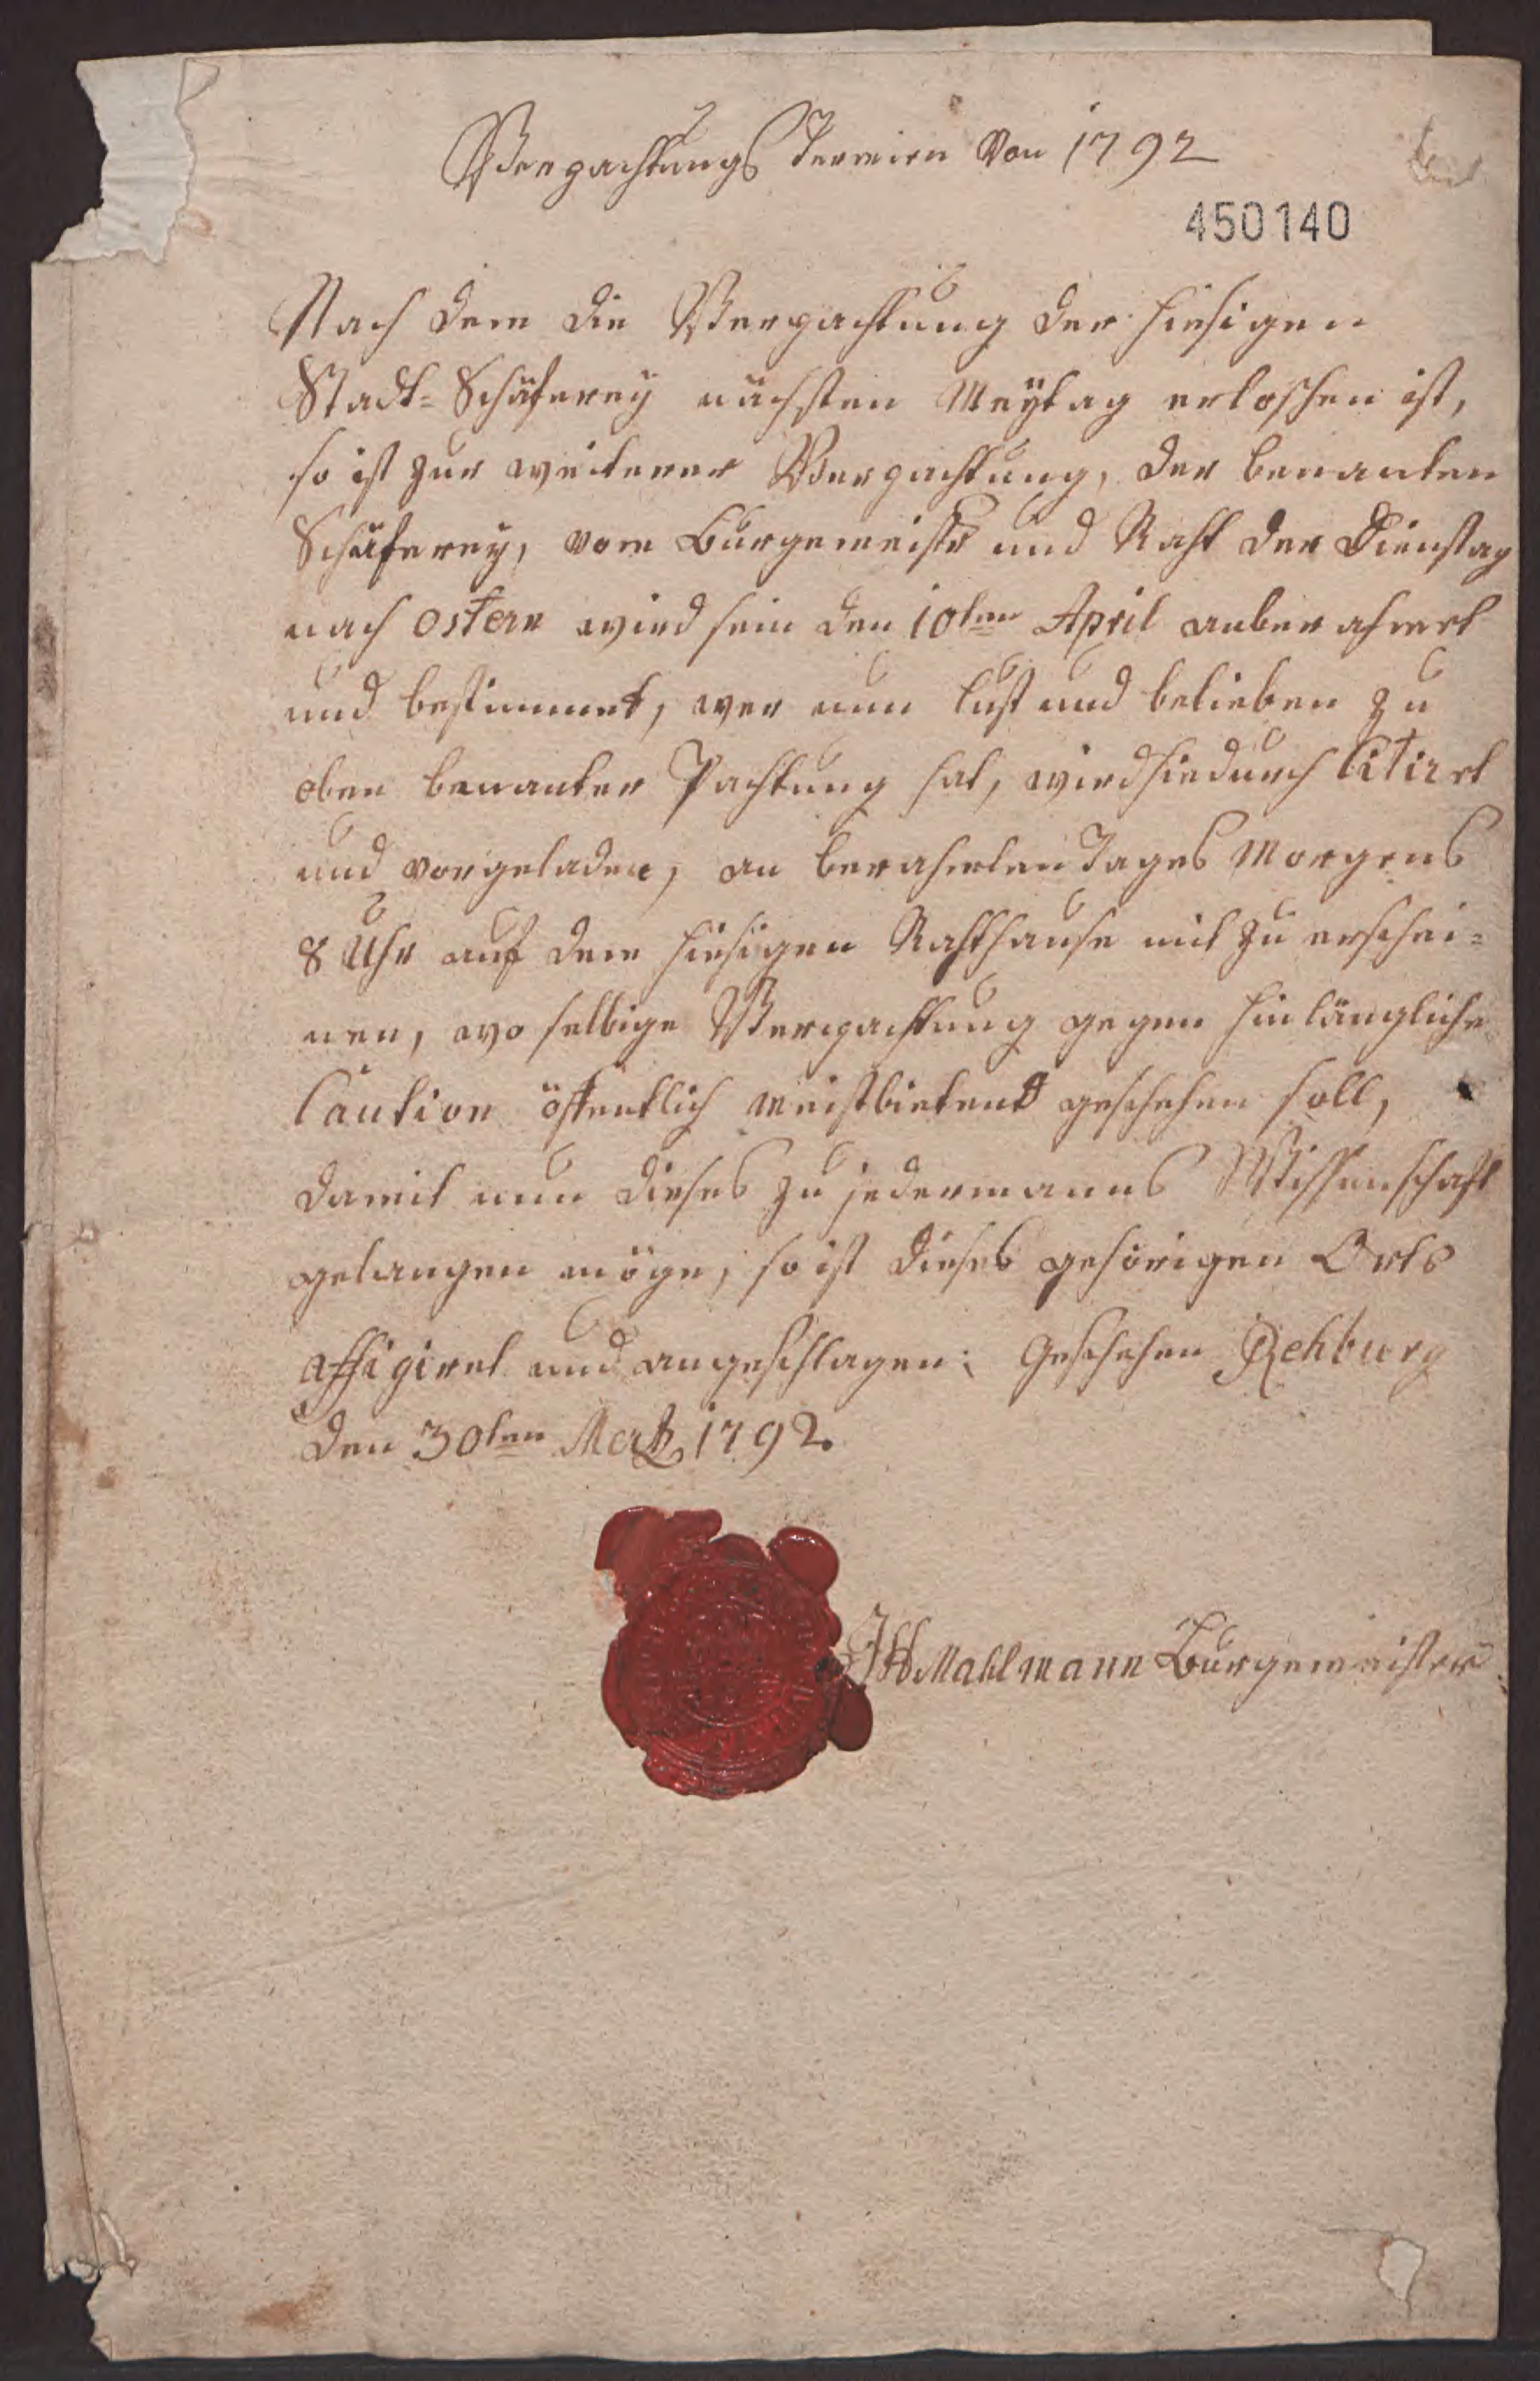 Verpachtungs Termin von 1792
450140
Nach dem die Verpachtung der hiesigen
Stadt-Schäferey nächsten Meÿtag erloschen ist,
so ist zur weiterer Verpachtung, der benanten
Schäferey, vom Bürgemeistr und Raht der Dienstag
nach Ostern wird sein den 10ten April anberahmet
und bestimmet, wer nun lust und belieben zu
oben benanter Pachtung hat, wird hiedurch Citiret
und vorgeladen, an berahmten Tages Morgens
8 Uhr auf dem hiesigen Rahthause mit zu erschei=
nen, wo selbige Verpachtung gegen hinlängliche
Caution öffentlich meistbietend geschehen soll,
damit nun dieses zu jedermanns Wissenschaft
gelangen möge, so ist dieses gehörigen Orts
affigiret und angeschlagen; Geschehen Rehburg
den 30ten Mertz 1792.
Mahlmann Bürgemeister